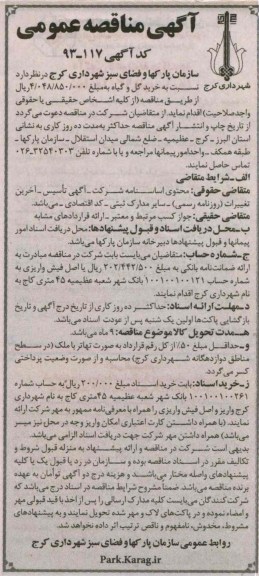 آگهی مناقصه عمومی
کد آگهی ۱۱۷-۹۳
شهرداری کرج
سازمان پارکها و فضای سبز شهرداری کرج در نظر دارد
نسبت به خرید گل و گیاه به مبلغ ۴/۰۴۸/۸۵۰/۰۰۰ ریال
از طریق مناقصه (از کلیه اشخاص حقیقی یا حقوقی
واجد صلاحیت) اقدام نماید. از متقاضیان شرکت در مناقصه دعوت می گردد
از تاریخ چاپ و انتشار آگهی مناقصه حداکثر به مدت ده روز کاری به نشانی
استان البرز - کرج - عظیمیه - ضلع شمالی میدان استقلال - سازمان پارکها -
طبقه همکف - واحد امور پیمانها مراجعه و یا با شماره تلفن ۳۲۵۴۰۳۰۳-۰۲۶
تماس حاصل نمایند.
الف-شرایط متقاضی
متقاضی حقوقی: محتوی اساسنامه شرکت - آگهی تأسیس - آخرین
تغییرات (روزنامه رسمی) - سایر مدارک ثبتی - کد اقتصادی - می باشد.
متقاضی حقیقی: جواز کسب مرتبط و معتبر - ارائه قراردادهای مشابه
ب-محل دریافت اسناد و قبول پیشنهادها: محل دریافت اسناد امور
پیمانها و قبول پیشنهادها دبیرخانه سازمان پارکها می باشد.
ج-شماره حساب: متقاضیان می بایست بابت شرکت در مناقصه مبادرت به
ارائه ضمانتنامه بانکی به مبلغ ۲۰۲/۴۴۲/۵۰۰ ریال یا اصل فیش واریزی به
حساب شماره ۱۰۰۱۰۰۱۰۰۱۲۱ بانک شهر شعبه عظیمیه ۴۵ متری کاج به
نام شهرداری کرج اقدام نمایند.
د-مهلت ارائه اسناد: حداکثر ده روز کاری از تاریخ درج آگهی و تاریخ
بازگشایی پاکت ها اولین یک شنبه پس از عودت اسناد می باشد.
ه-مدت تحویل کالا موضوع مناقصه: ۹ ماه می باشد.
و-حداقل مبلغ ۵۰٪ از کل رقم قرارداد به صورت تهاتر با ملک (در سطح
مناطق دوازده گانه شهرداری کرج) محاسبه و از صورت وضعیت پرداختی
کسر می گردد.
ز-خرید اسناد: بابت خرید اسناد مبلغ ۲۰۰/۰۰۰ ریال به حساب شماره
۱۰۰۱۰۰۱۰۰۲۶۱ بانک شهر شعبه عظیمیه ۴۵ متری کاج به نام شهرداری
کرج واریز و اصل فیش واریزی را همراه با معرفی نامه ممهور به مهر شرکت ارائه
نمایند. (با همراه داشتن کارت اعتباری امکان واریز وجه در محل نیز میسر
می باشد) همراه داشتن مهر شرکت جهت دریافت اسناد الزامی می باشد.
بدیهی است شرکت در مناقصه و ارائه پیشنهاد به منزله قبول شروط و
تکالیف مقرر در اسناد مناقصه بوده و سازمان در رد یا قبول یک یا کلیه
پیشنهادهای واصله مختار می باشد. و هزینه درج دو آگهی توأمان به عهده
برنده مناقصه می باشد ضمناً مشروح شرایط مناقصه در اسناد درج می باشد که
شرکت کنندگان می بایست کلیه مدارک ارسالی را پس از اخذ با قید قبولی مهر
و امضاء نموده و در پاکت های لاک و مهر شده تحویل نمایند و به پیشنهادهای
مشروط، مخدوش، نامفهوم و ناقص ترتیب اثر داده نخواهد شد.
روابط عمومی سازمان پارکها و فضای سبز شهرداری کرج
Park.Karag.ir